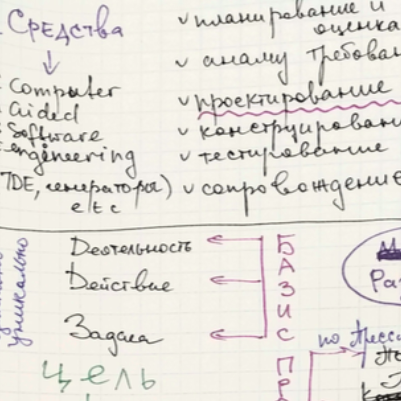 Средства
Computer
Aided
Software
engineering
IDE, генераторы)
etc
планирование и
оценка
анализ требован
проектирование
конструирован
тестирование
сопровождение
Деятельность
Действие
Задача
БАЗИС
ЦЕЛЬ
уникально
по Пресс
Ра